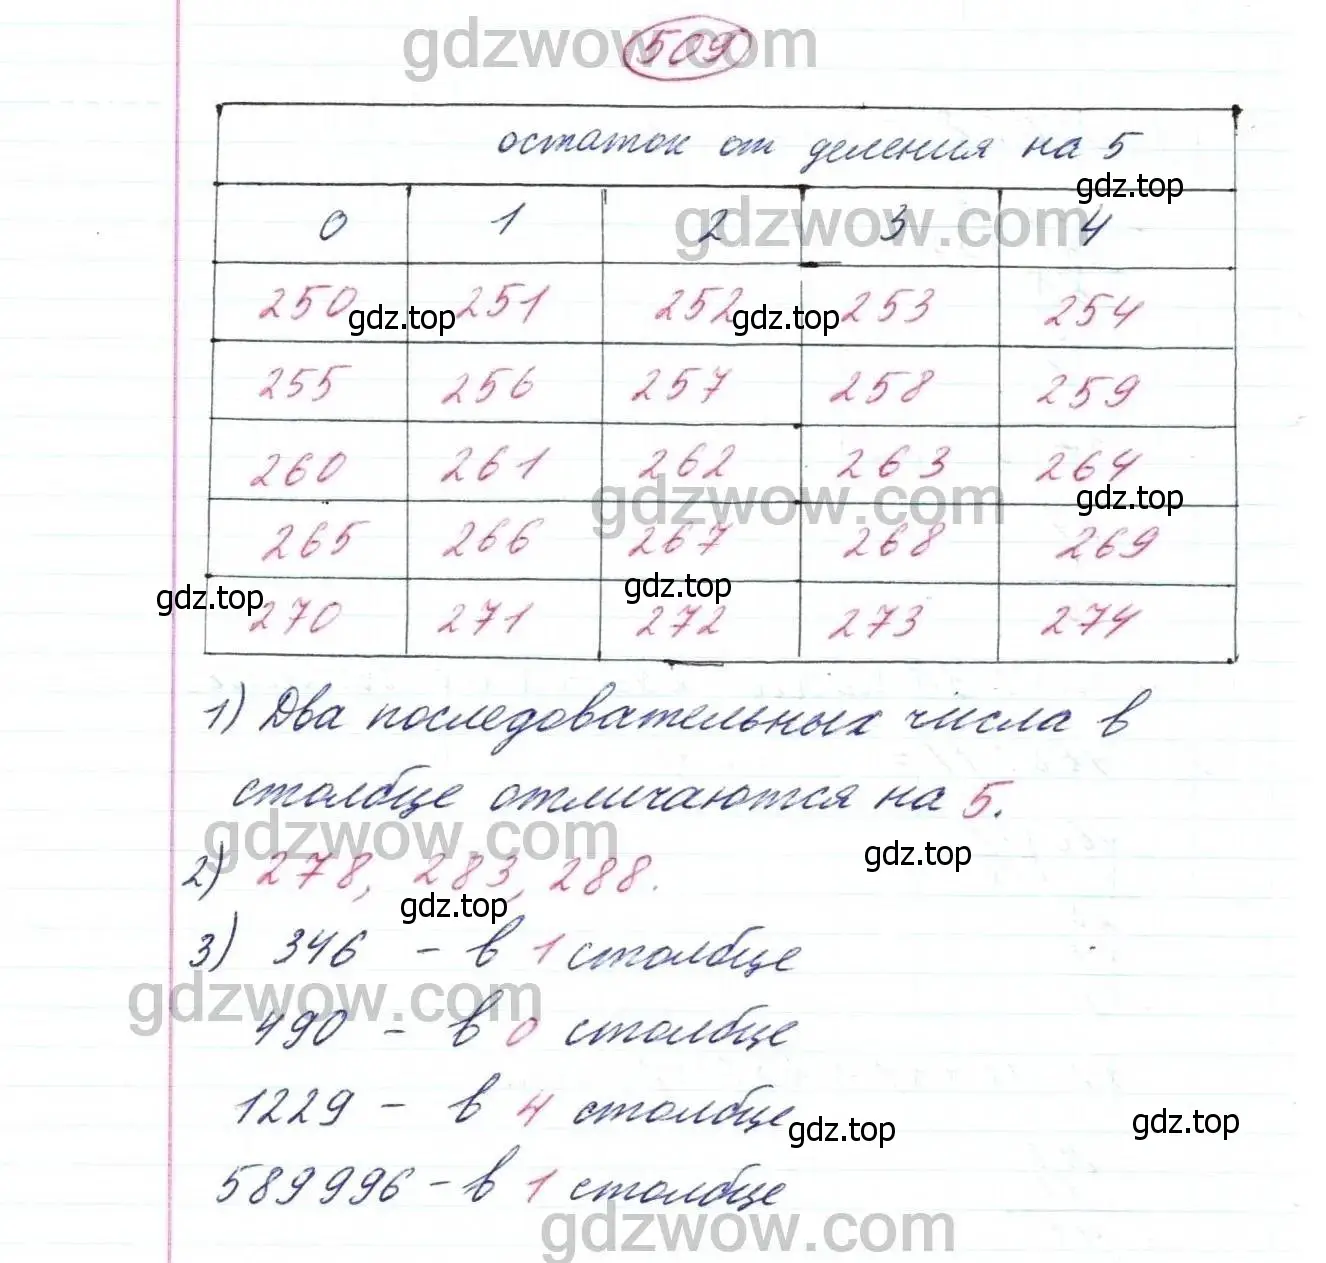 gdzwow.com
509
остаток от деления на 5
gdz.top
0 1 2 3 4
gdzwow.com
250 251 252 253 254
gdz.top gdz.top
255 256 257 258 259
260 261 262 263 264
gdzwow.com gdz.top
265 266 267 268 269
gdz.top gdz.top
270 271 272 273 274
1) Два последовательных числа в
столбце отличаются на 5.
gdzwow.com
gdz.top
2) 278, 283, 288.
gdz.top
3) 346 - в 1 столбце
gdzwow.com
490 - в 0 столбце
1229 - в 4 столбце
gdz.top gdz.top
589996 - в 1 столбце
gdzwow.com